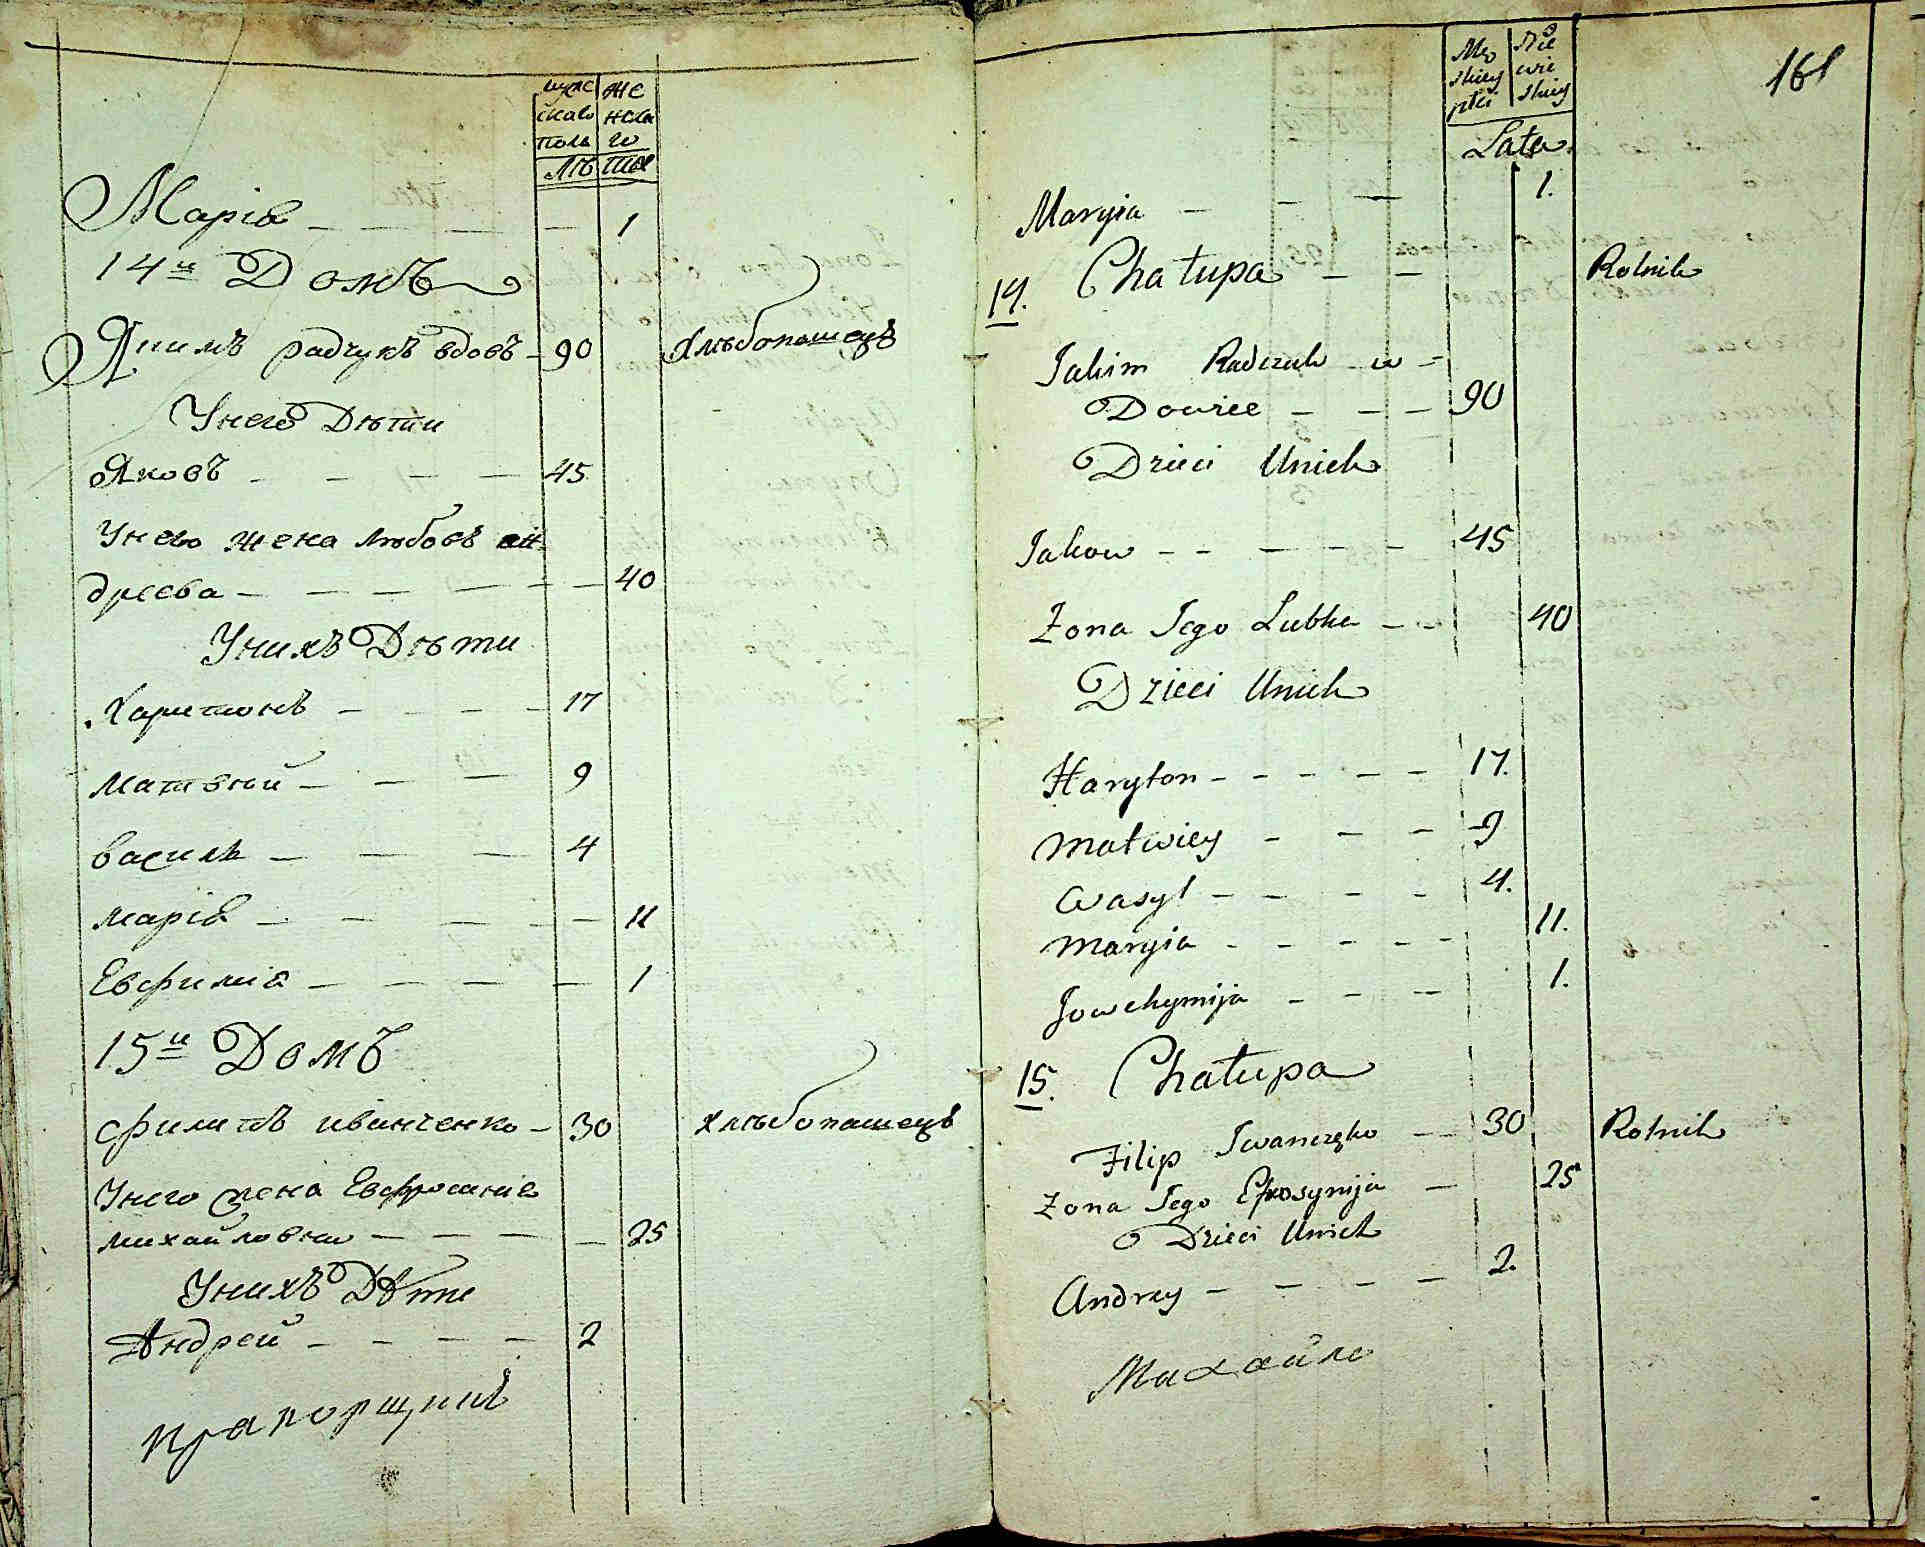 муже
скаго
пола
же
нска
го
Лѣта
Марія 1
14й Домъ
Якимъ радчукъ вдовъ 90 Хлѣбопашецъ
Унего Дѣти
Яковъ 45
Унего жена любовъ ан
дреева 40
Унихъ Дѣти
Харитонъ 17
матвѣй 9
василь 4
марія 11
Евфимія 1
15й Домъ
филипъ иванченко 30 хлѣбопашецъ
Унего жена Евфросинія
михайловна 25
Унихъ Дѣти
Андрей 2
прапорщикъ
161
Mę
skiey
płci
Nie
wie
skiey
Lata
Maryia 1.
14. Chałupa Rolnik
Jakim Radczuk w
Dowiec 90
Dzieci Unich
Jakow 45
Żona Jego Lubka 40
Dzieci Unich
Haryton 17.
Matwiey 9
Wasyl 4.
Maryia 11.
Jowchymija 1.
15. Chałupa
Filip Iwanczęko 30 Rolnik
Żona Jego Efrosynija 25
Dzieci Unich
Andrey 2.
Михайло